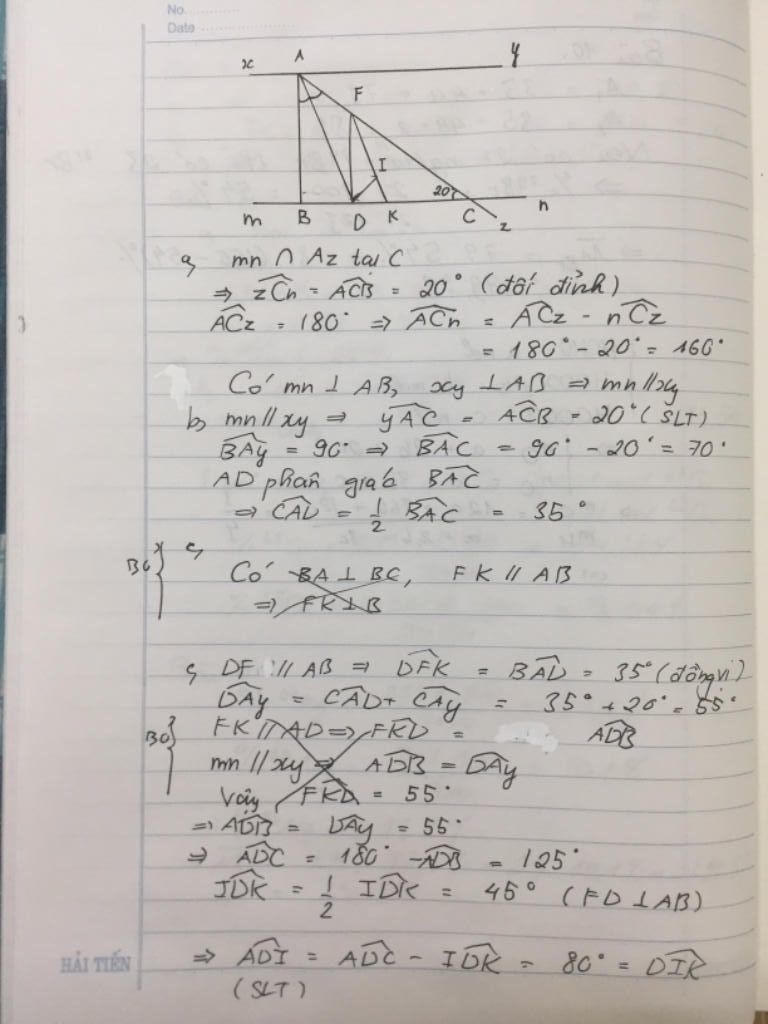 No.
Date
x A y
F
I
20°
m B D K C n
z
a, mn ∩ Az tại C
⇒ zCn = ACB = 20° (đối đỉnh)
ACz = 180° ⇒ ACn = ACz - nCz
= 180° - 20° = 160°
Có mn ⊥ AB, xy ⊥ AB ⇒ mn // xy
b, mn // xy ⇒ yAC = ACB = 20° (SLT)
BAy = 90° ⇒ BAC = 90° - 20° = 70°
AD phân giác BAC
⇒ CAD = 1/2 BAC = 35°
c,
Bỏ } Có BA ⊥ BC, FK // AB
⇒ FK ⊥ B
c, DF // AB ⇒ DFK = BAD = 35° (đồng vị)
DAy = CAD + CAy = 35° + 20° = 55°
Bỏ } FK // AD ⇒ FKD = ADB
mn // xy ⇒ ADB = DAy
Vậy FKD = 55°
⇒ ADB = DAy = 55°
⇒ ADC = 180° - ADB = 125°
IDK = 1/2 IDK = 45° (FD ⊥ AB)
⇒ ADI = ADC - IDK = 80° = DIK
(SLT)
HẢI TIẾN